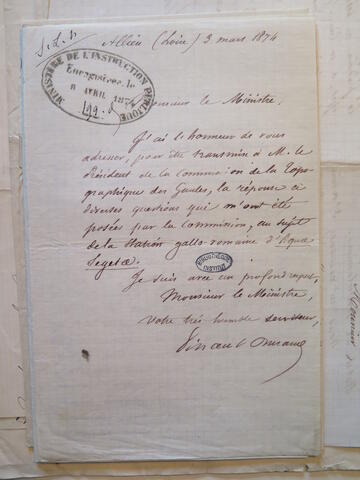 Allieu (Loire) 3. mars 1874
MINISTÈRE DE L'INSTRUCTION PUBLIQUE
Enregistré le
8 AVRIL 187
Monsieur le Ministre,
J'ai l'honneur de vous
adresser, pour être transmise à M. le
Président de la Commission de la Topo-
graphique des Gaules, la réponse à
diverses questions qui m'ont été
posées par la Commission, au sujet
de la Station gallo-romaine d'Aquæ
Segetæ.
Je suis avec un profond respect,
Monsieur le Ministre,
votre très humble serviteur,
Vincent Durand